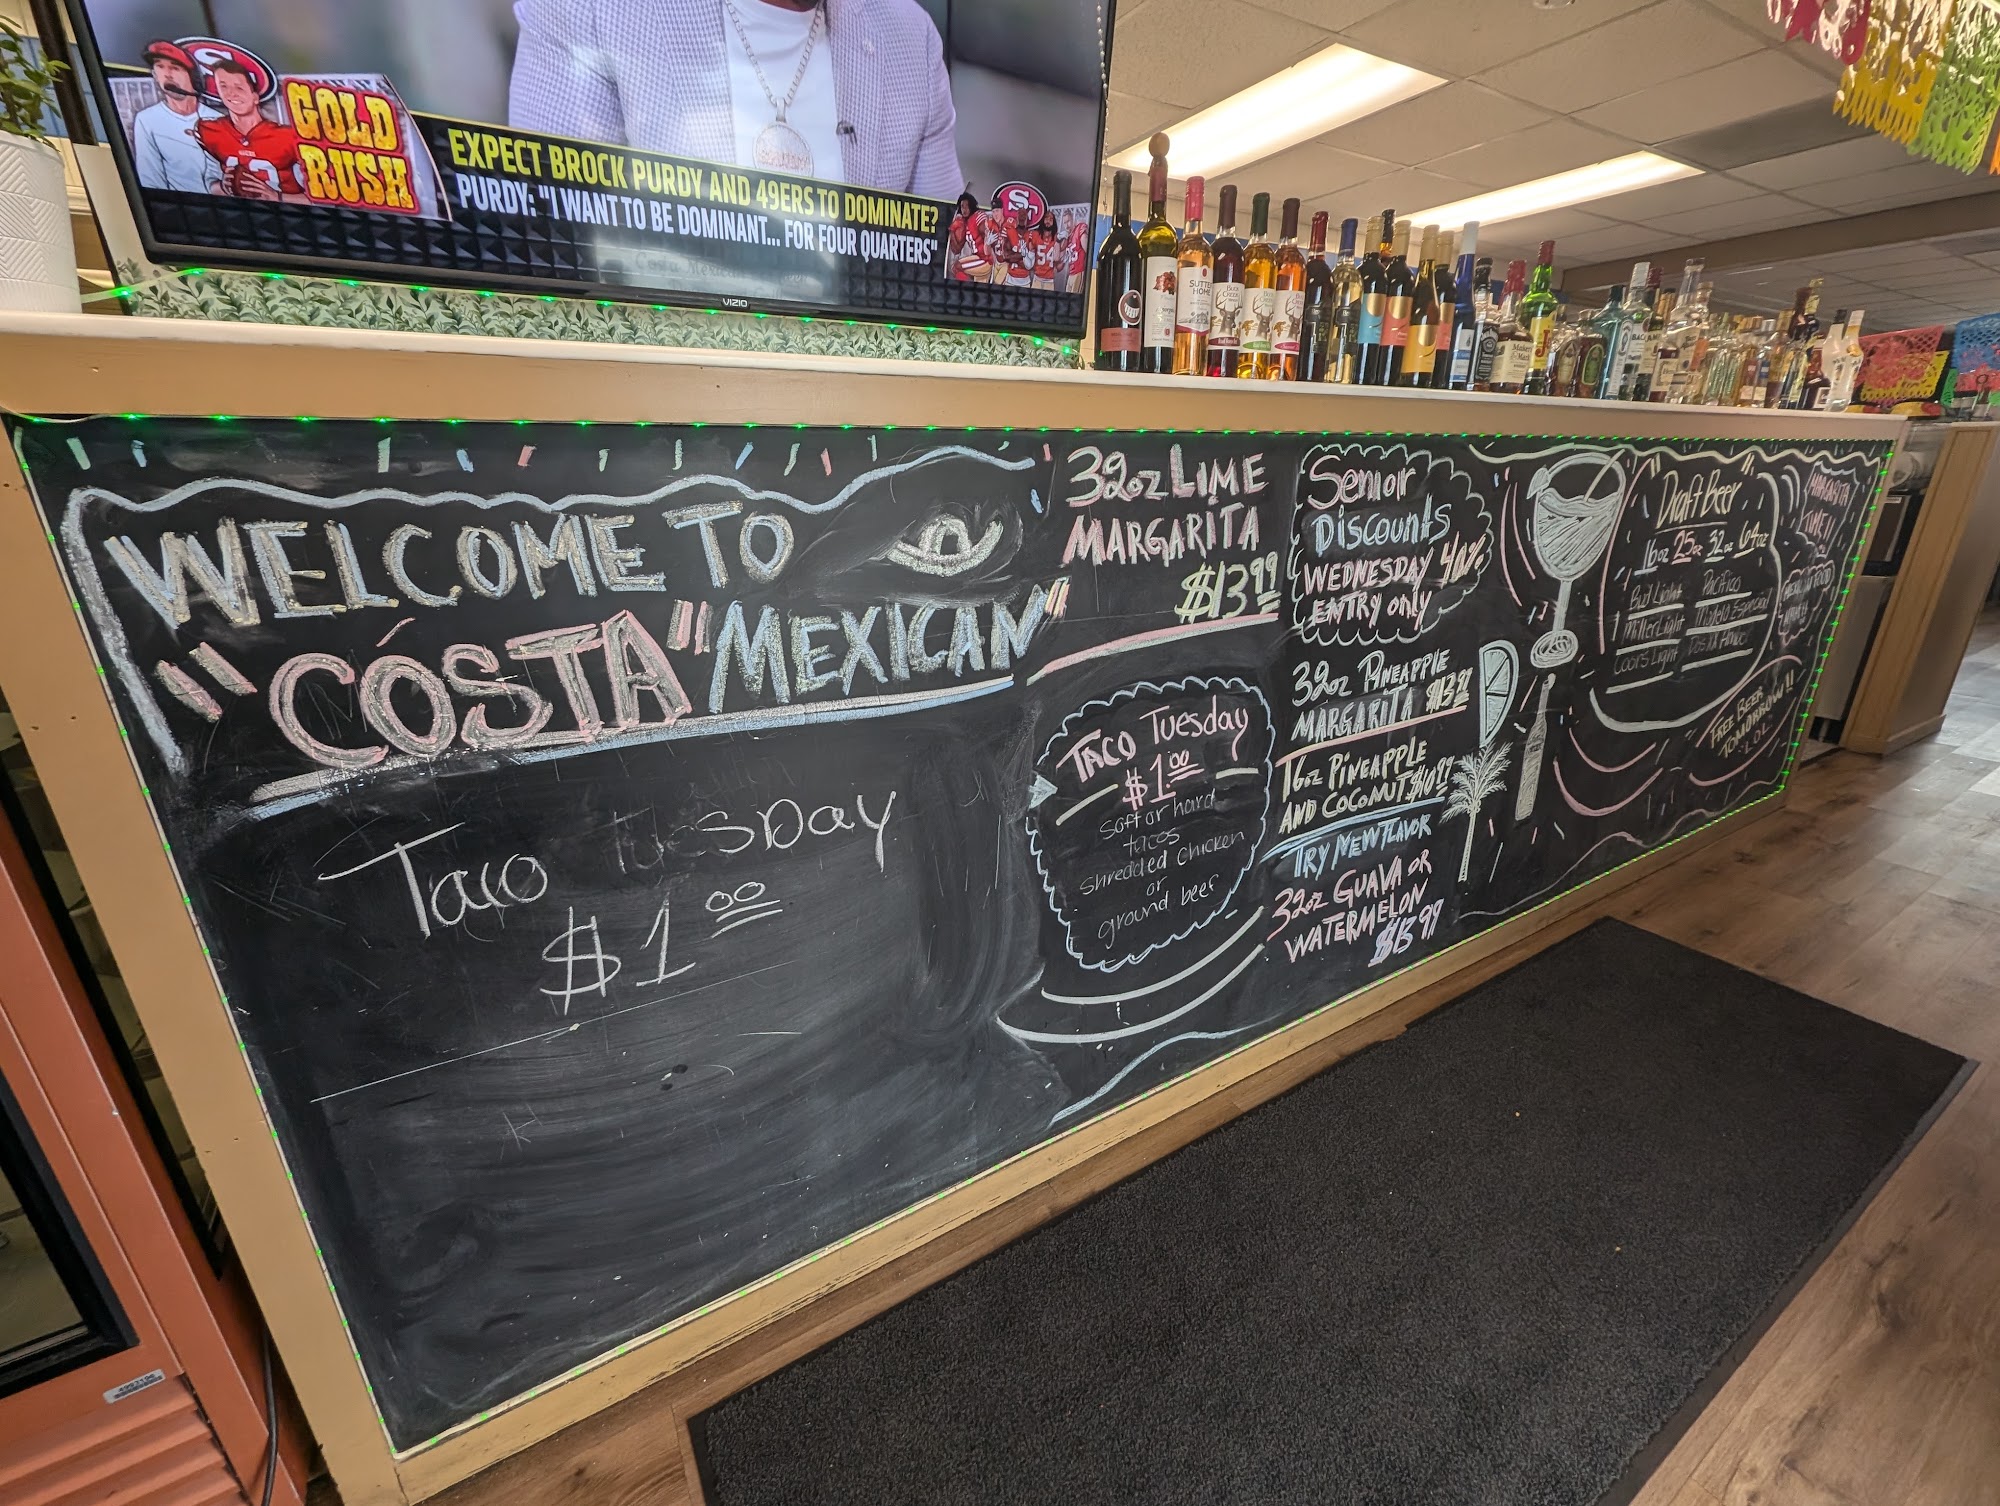 GOLD
RUSH
EXPECT BROCK PURDY AND 49ERS TO DOMINATE?
PURDY: "I WANT TO BE DOMINANT... FOR FOUR QUARTERS"
VIZIO
SUTTER
HOME
WELCOME TO
"COSTA" MEXICAN"
Taco Tuesday
$1.00
32oz LIME
MARGARITA
$13.99
TACO Tuesday
$1.00
Soft or hard
tacos
Shredded chicken
or
ground beef
Senior
DISCOUNTS
WEDNESDAY 40%
ENTRY only
32oz PINEAPPLE
MARGARITA $13.99
16oz PINEAPPLE
AND COCONUT $10.99
TRY NEW FLAVOR
32oz GUAVA OR
WATERMELON
$13.99
"Draft Beer"
16oz 25oz 32oz 64oz
Bud Light Pacifico
Miller Light Modelo Especial
Coors Light
MARGARITA
TIME!!
FREE BEER
TOMORROW!!
LOL